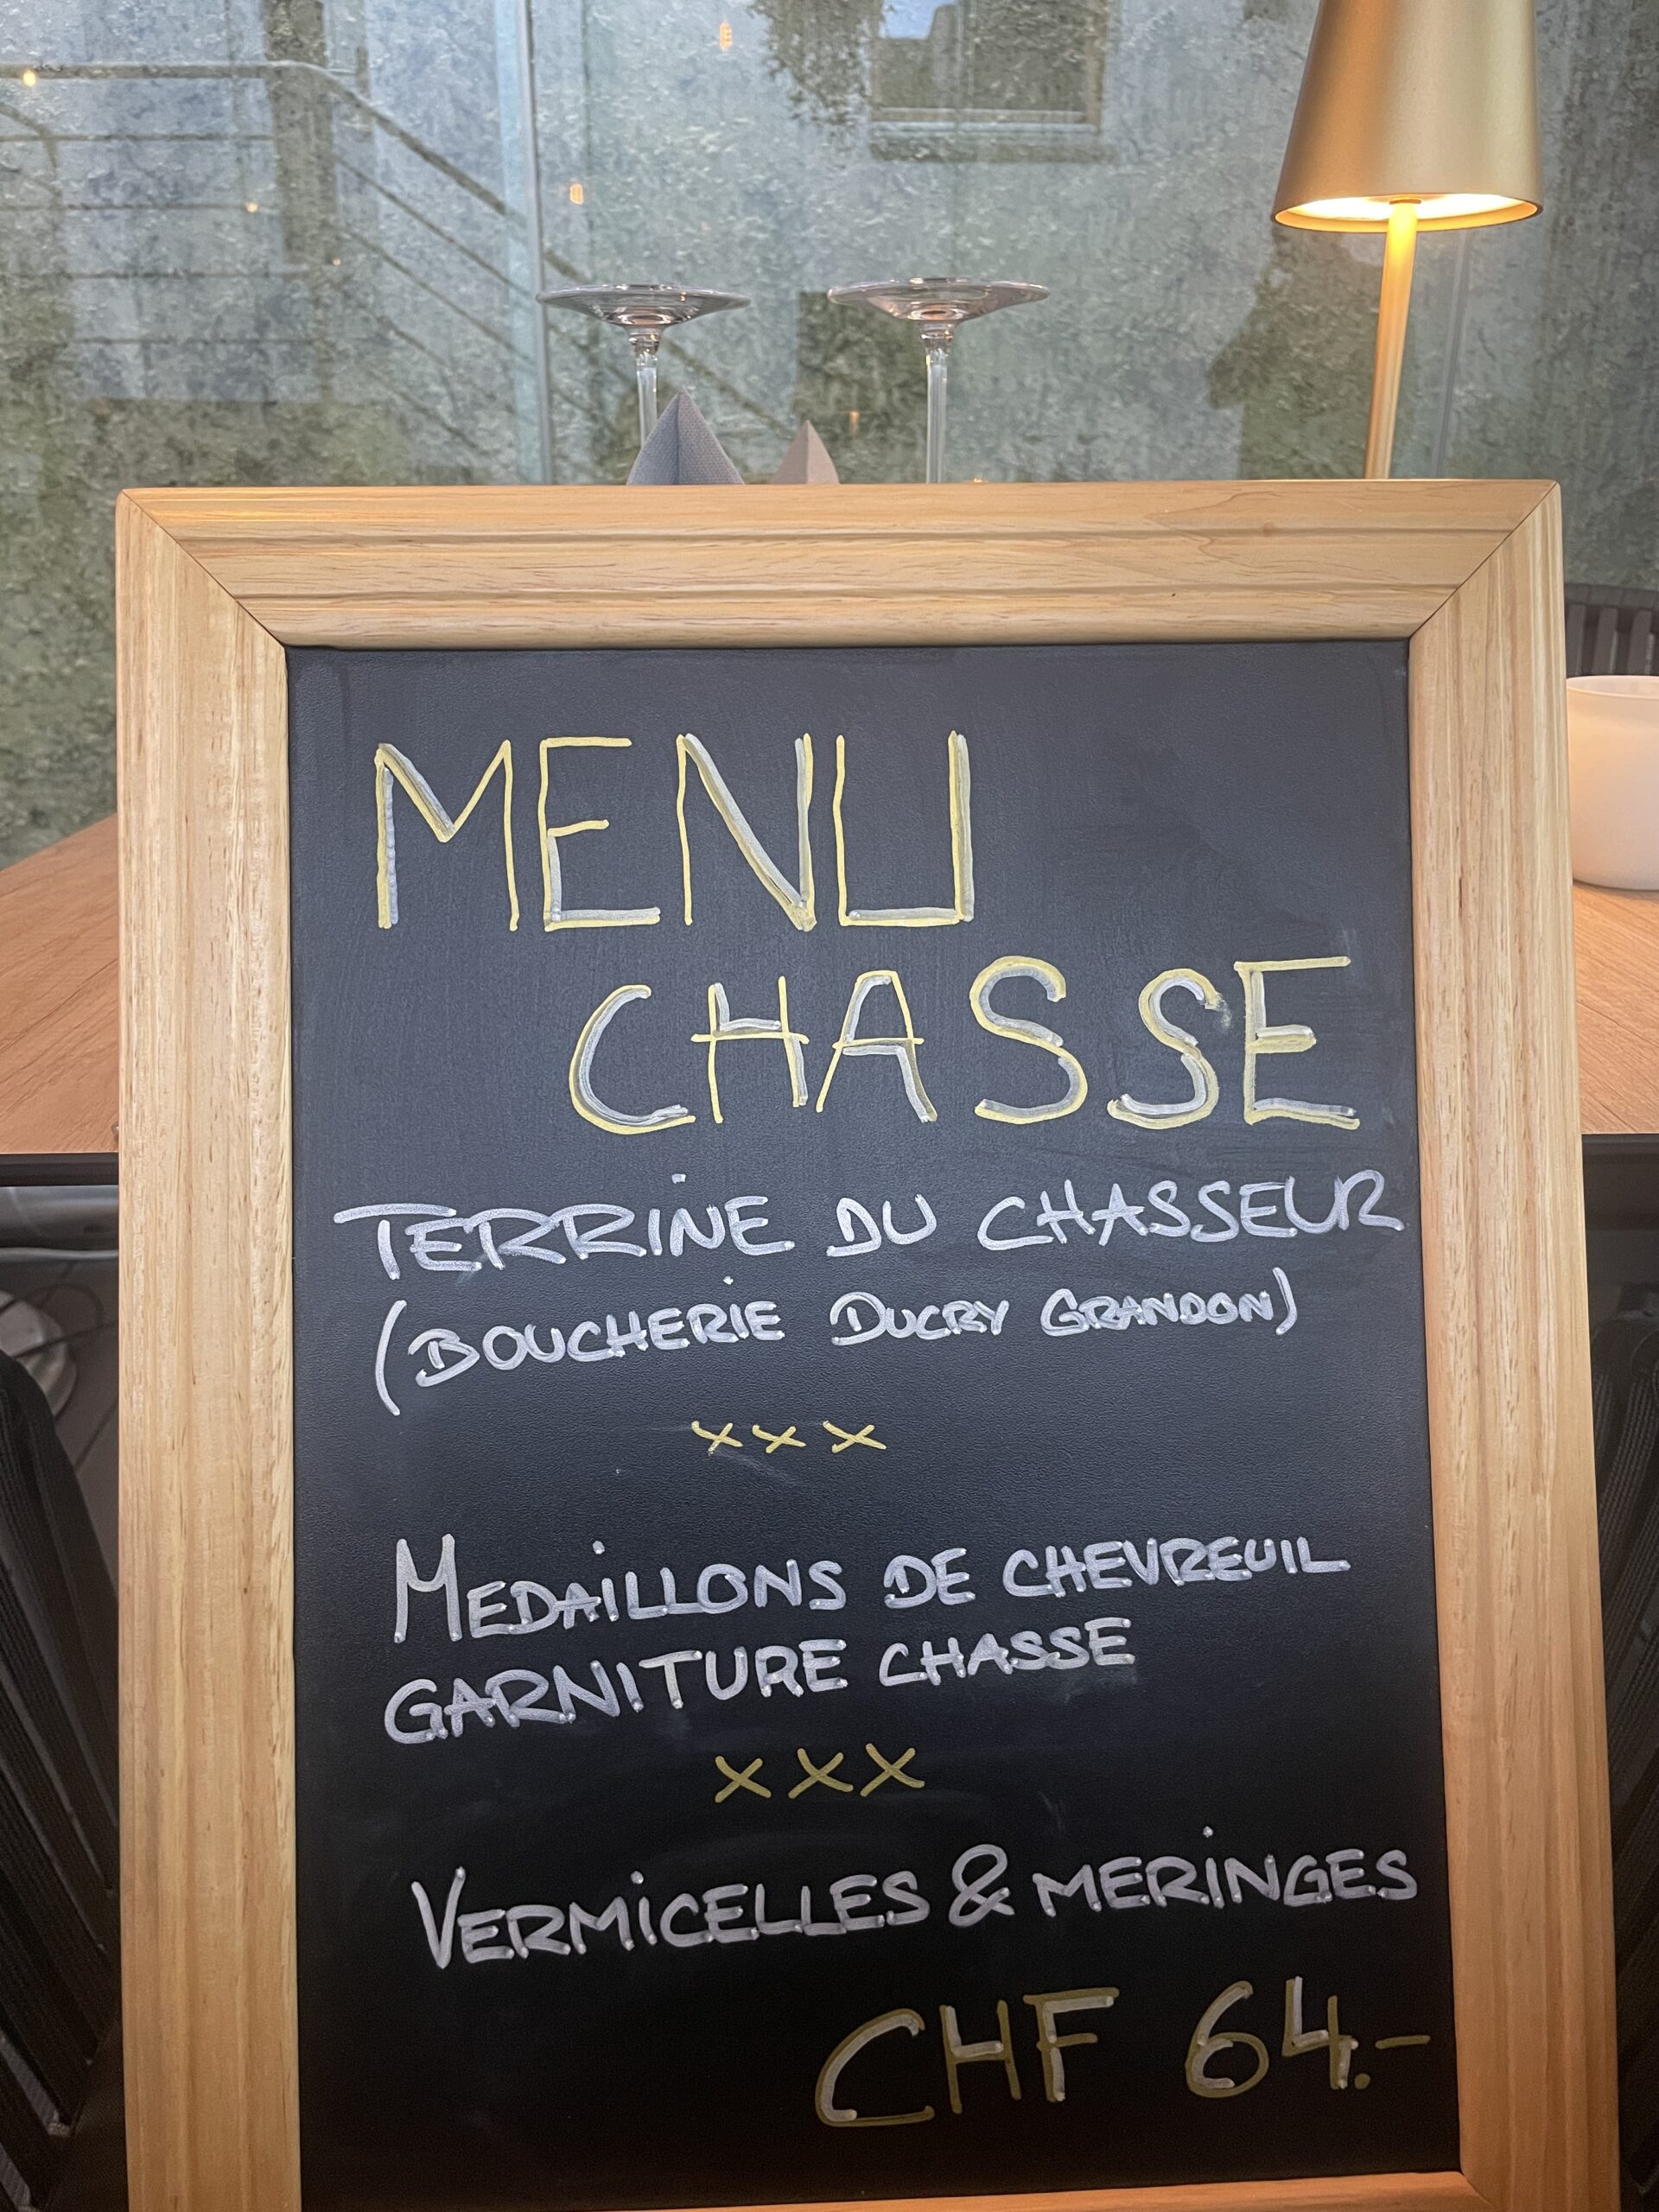 MENU
CHASSE
TERRINE DU CHASSEUR
(BOUCHERIE DUCRY GRANDON)
x x x
MEDAILLONS DE CHEVREUIL
GARNITURE CHASSE
x x x
VERMICELLES & MERINGES
CHF 64.-